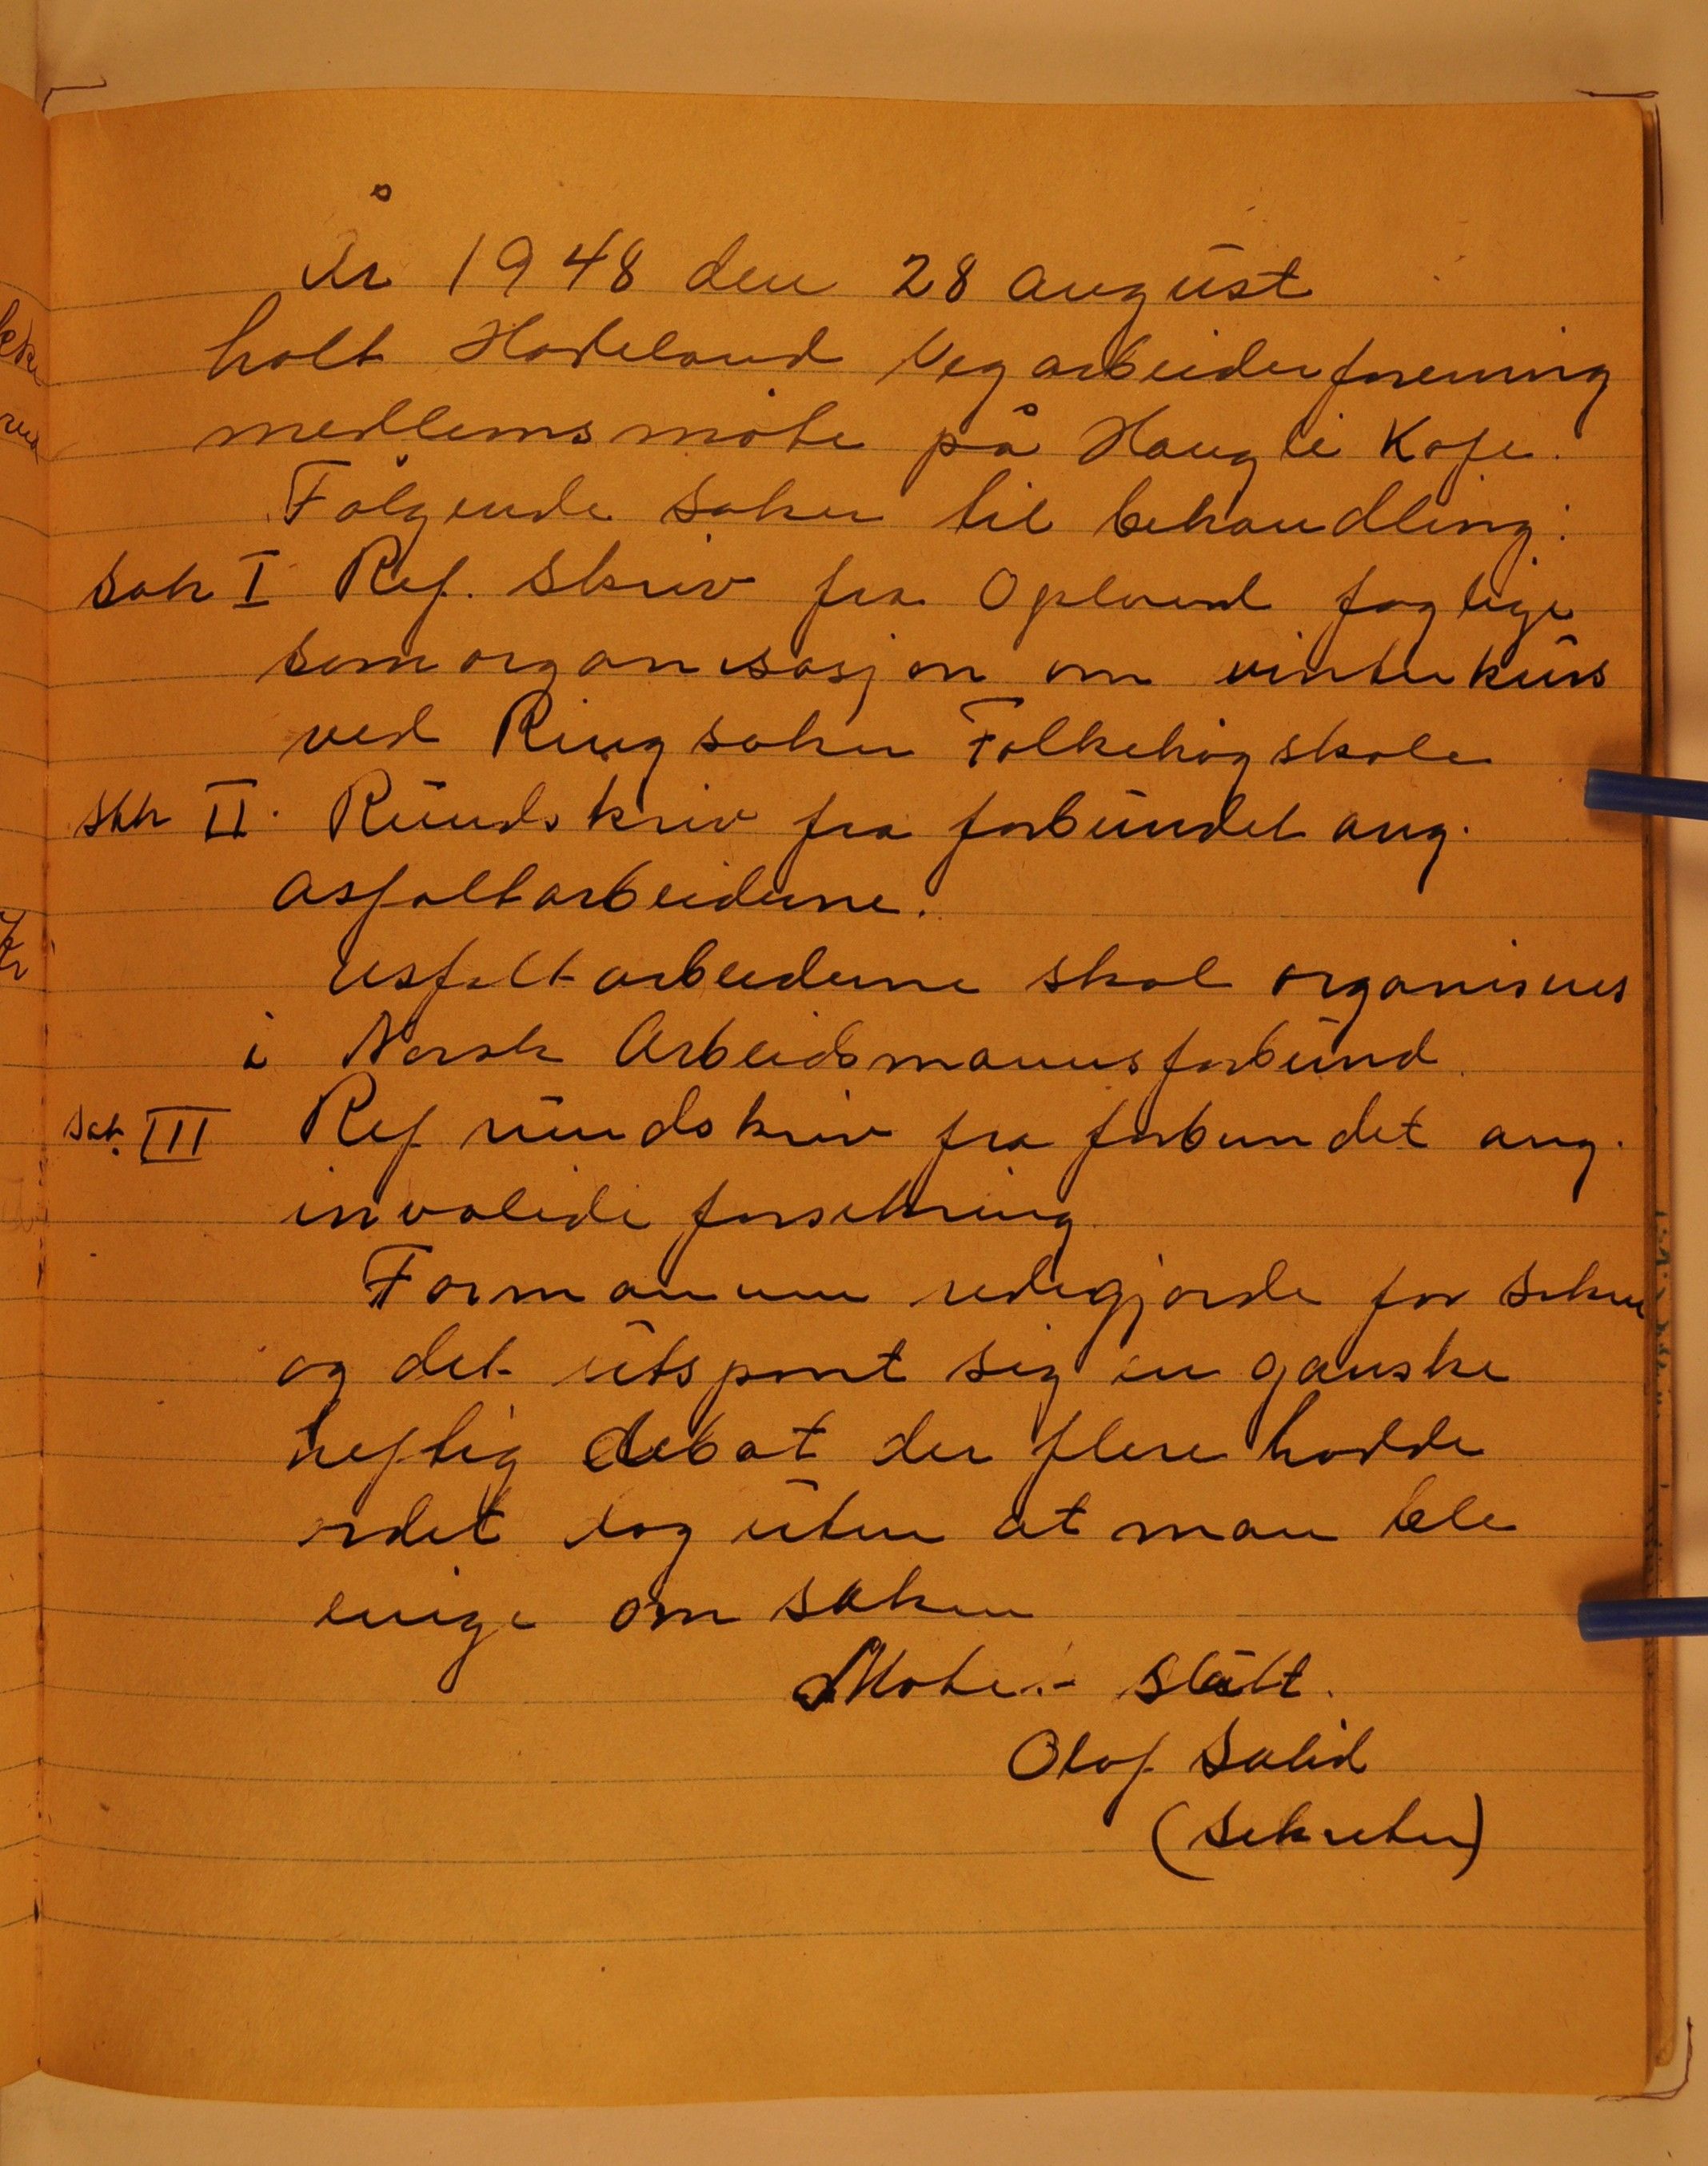 År 1948 den 28 august
holt Hadeland Vegarbeiderforening
medlemsmøte på Haugli Kafe.
Følgende saker til behandling:
Sak I Ref. skriv fra Opland faglige
samorganisasjon om vinterkurs
ved Ringsaker Folkehøgskole
Sak II. Rundskriv fra forbundet ang.
asfaltarbeiderne.
Asfaltarbeiderne skal organiseres
i Norsk Arbeidsmannsforbund.
Sak III Ref rundskriv fra forbundet ang.
invalide forsekring
Formannen redegjorde for saken
og det utspant sig en ganske
heftig debat der flere hadde
ordet dog uten at man ble
enige om saken
Møte:- slutt.
Olaf Solid
(Sekretær)